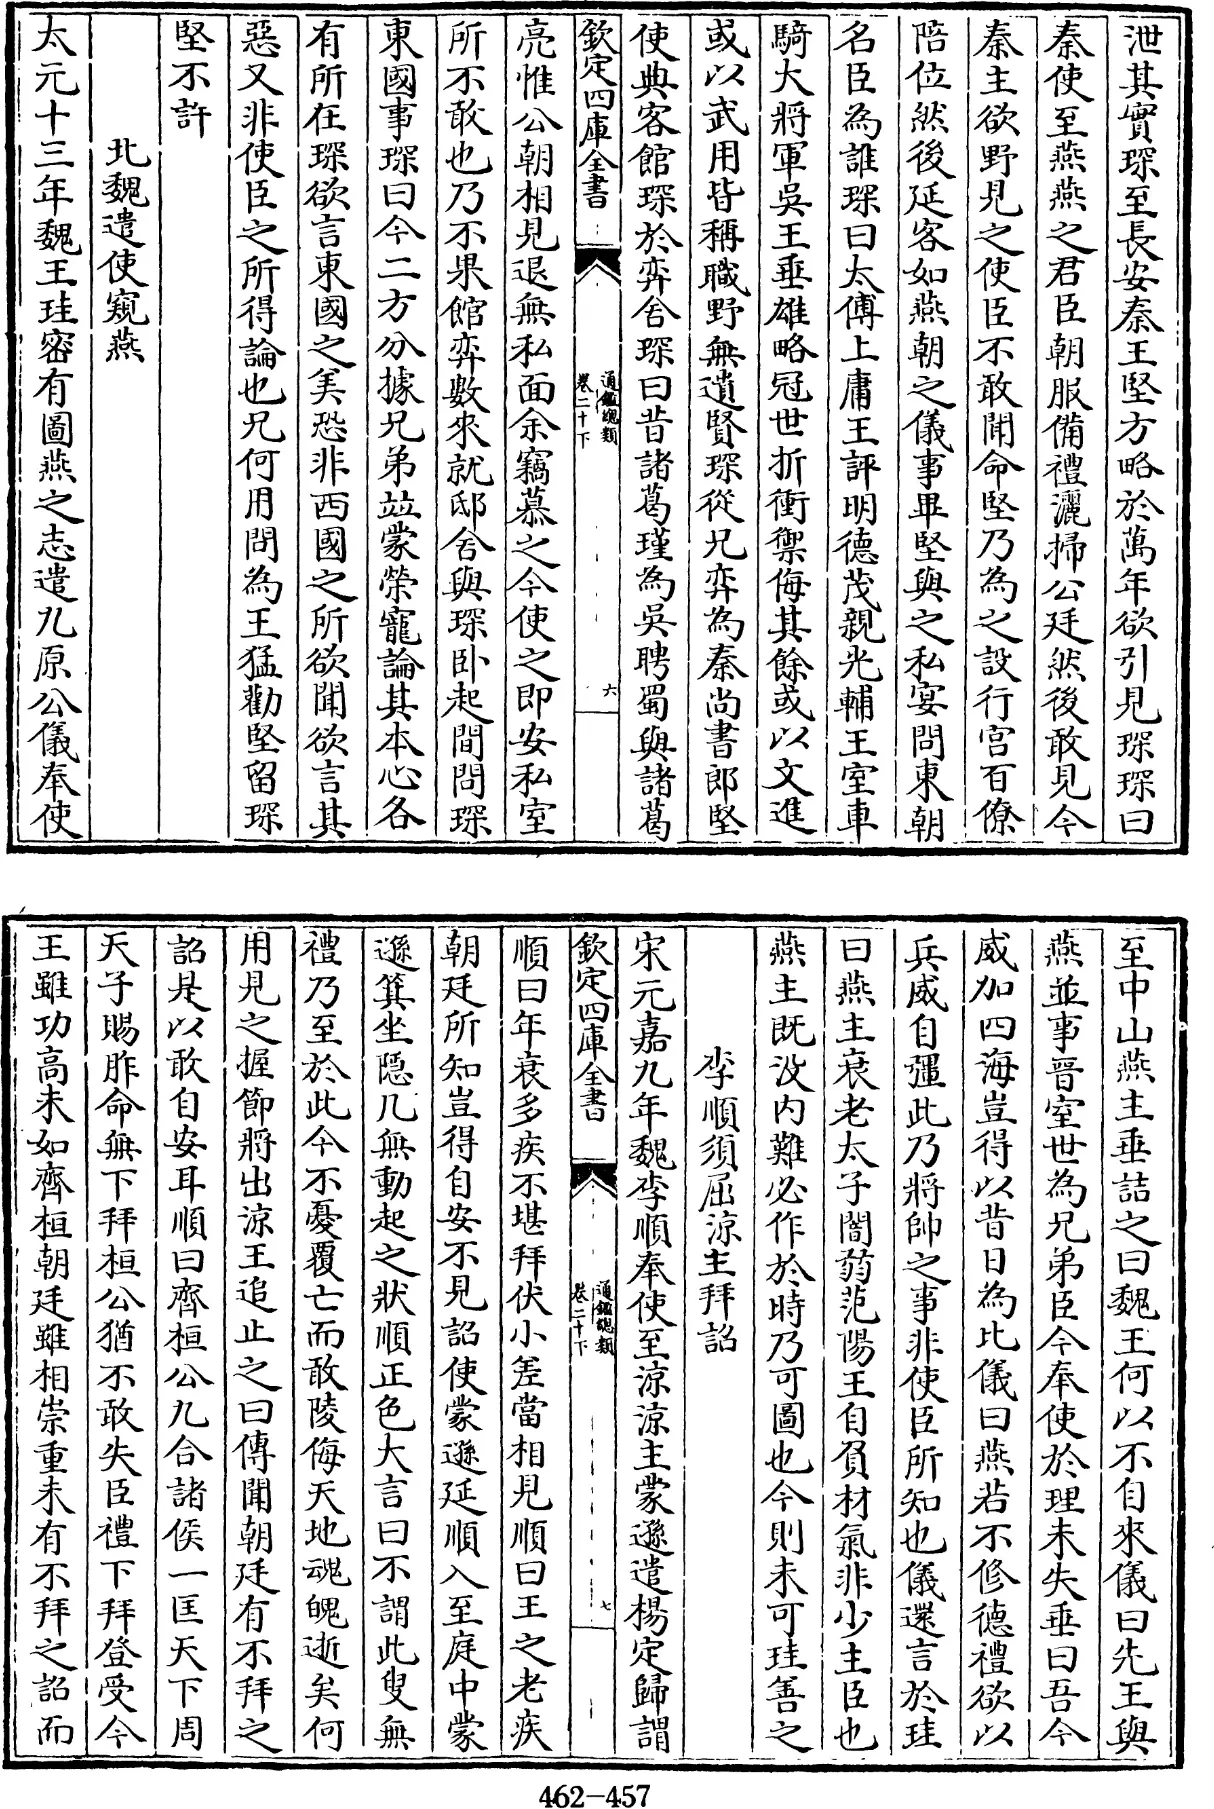 泄其實琛至長安秦王堅方略於萬年欲引見琛琛曰
秦使至燕燕之君臣朝服備禮灑掃公廷然後敢見今
秦主欲野見之使臣不敢聞命堅乃為之設行宮百僚
陪位然後延客如燕朝之儀事畢堅與之私宴問東朝
名臣為誰琛曰太傅上庸王評明德茂親光輔王室車
騎大將軍吳王垂雄略冠世折衝禦侮其餘或以文進
或以武用皆稱職野無遺賢琛從兄弈為秦尚書郎堅
使典客館琛於弈舍琛曰昔諸葛瑾為吳聘蜀與諸葛
欽定四庫全書
通鑑總類
卷二十下
六
亮惟公朝相見退無私面余竊慕之今使之即安私室
所不敢也乃不果館弈數來就邸舍與琛卧起間問琛
東國事琛曰今二方分據兄弟竝蒙榮寵論其本心各
有所在琛欲言東國之美恐非西國之所欲聞欲言其
惡又非使臣之所得論也兄何用問為王猛勸堅留琛
堅不許
北魏遣使窺燕
太元十三年魏王珪密有圖燕之志遣九原公儀奉使
至中山燕主垂詰之曰魏王何以不自來儀曰先王與
燕並事晉室世為兄弟臣今奉使於理未失垂曰吾今
威加四海豈得以昔日為比儀曰燕若不修德禮欲以
兵威自彊此乃將帥之事非使臣所知也儀還言於珪
曰燕主衰老太子闇蒻范陽王自負材氣非少主臣也
燕主既沒內難必作於時乃可圖也今則未可珪善之
李順須屈涼主拜詔
宋元嘉九年魏李順奉使至涼涼主蒙遜遣楊定歸謂
欽定四庫全書
通鑑總類
卷二十下
七
順曰年衰多疾不堪拜伏小差當相見順曰王之老疾
朝廷所知豈得自安不見詔使蒙遜延順入至庭中蒙
遜箕坐隱几無動起之狀順正色大言曰不謂此叟無
禮乃至於此今不憂覆亡而敢陵侮天地魂魄逝矣何
用見之握節將出涼王追止之曰傳聞朝廷有不拜之
詔是以敢自安耳順曰齊桓公九合諸侯一匡天下周
天子賜胙命無下拜桓公猶不敢失臣禮下拜登受今
王雖功高未如齊桓朝廷雖相崇重未有不拜之詔而
462-457